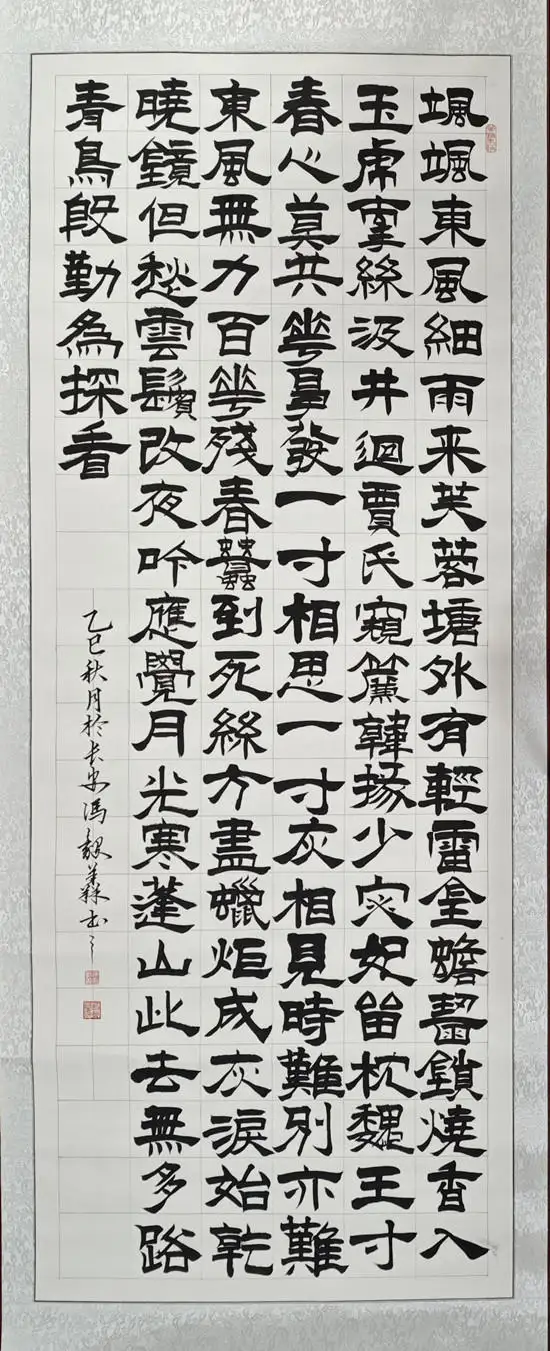 颯颯東風細雨来芙蓉塘外有輕雷金蟾齧鎖燒香入
玉虎牽絲汲井迴賈氏窺簾韓掾少宓妃留枕魏王寸
春心莫共華爭發一寸相思一寸灰相見時難別亦難
東風無力百華殘春蠶到死絲方盡蠟炬成灰淚始乾
曉鏡但愁雲鬢改夜吟應覺月光寒蓬山此去無多路
青鳥殷勤為探看
乙巳秋月於长安馮毅森书之